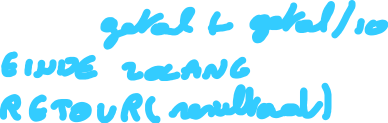 getal ← getal/10
EINDE ZOLANG
RETOUR(resultaat)